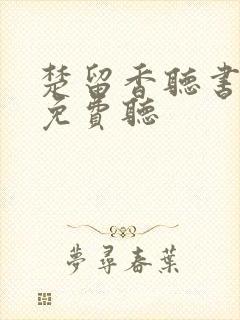 楚留香聽書
免費聽
夢尋春葉